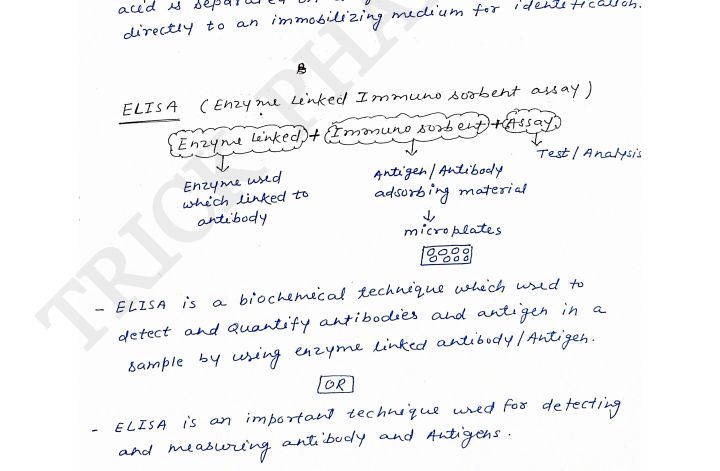 acid is separated on
directly to an immobilizing medium for identification.
ELISA (Enzyme Linked Immuno sorbent assay)
Enzyme linked + Immuno sorbent + Assay
Test/Analysis
Enzyme used
which linked to
antibody
Antigen/Antibody
adsorbing material
microplates
- ELISA is a biochemical technique which used to
detect and quantify antibodies and antigen in a
sample by using enzyme linked antibody/Antigen.
OR
- ELISA is an important technique used for detecting
and measuring antibody and Antigens.
TRICK PHA